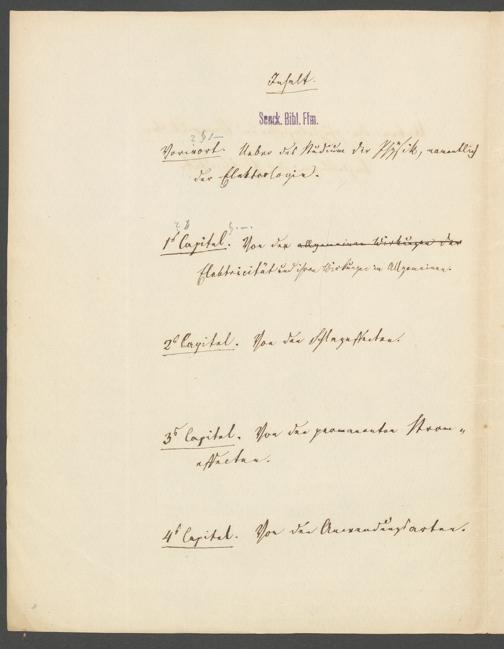 Inhalt.
Senck. Bibl. Ffm.
Vorwort. Ueber das Studium der Physik, namentlich
der Elektrologie.
1s Capitel. Von der allgemeinen Wirkungen der
Elektricität und ihren Wirkungen im Allgemeinen.
2s Capitel. Von den Schlageffecten.
3s Capitel. Von den permanenten Strom-
effecten.
4s Capitel. Von den Anwendungsarten.